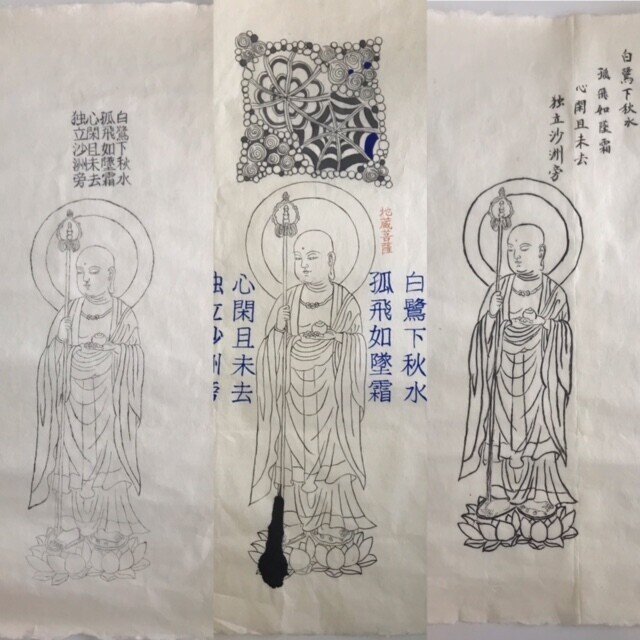 白鷺下秋水
孤飛如墜霜
心閑且未去
独立沙洲旁
地蔵菩薩
白鷺下秋水
孤飛如墜霜
心閑且未去
独立沙洲旁
白鷺下秋水
孤飛如墜霜
心閑且未去
独立沙洲旁